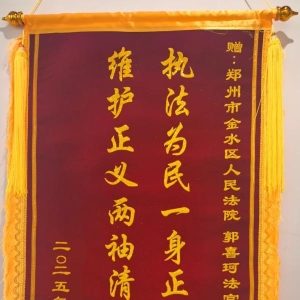 赠：郑州市金水区人民法院 郭喜珂法
执法为民一身正
维护正义两袖清
二〇二五年